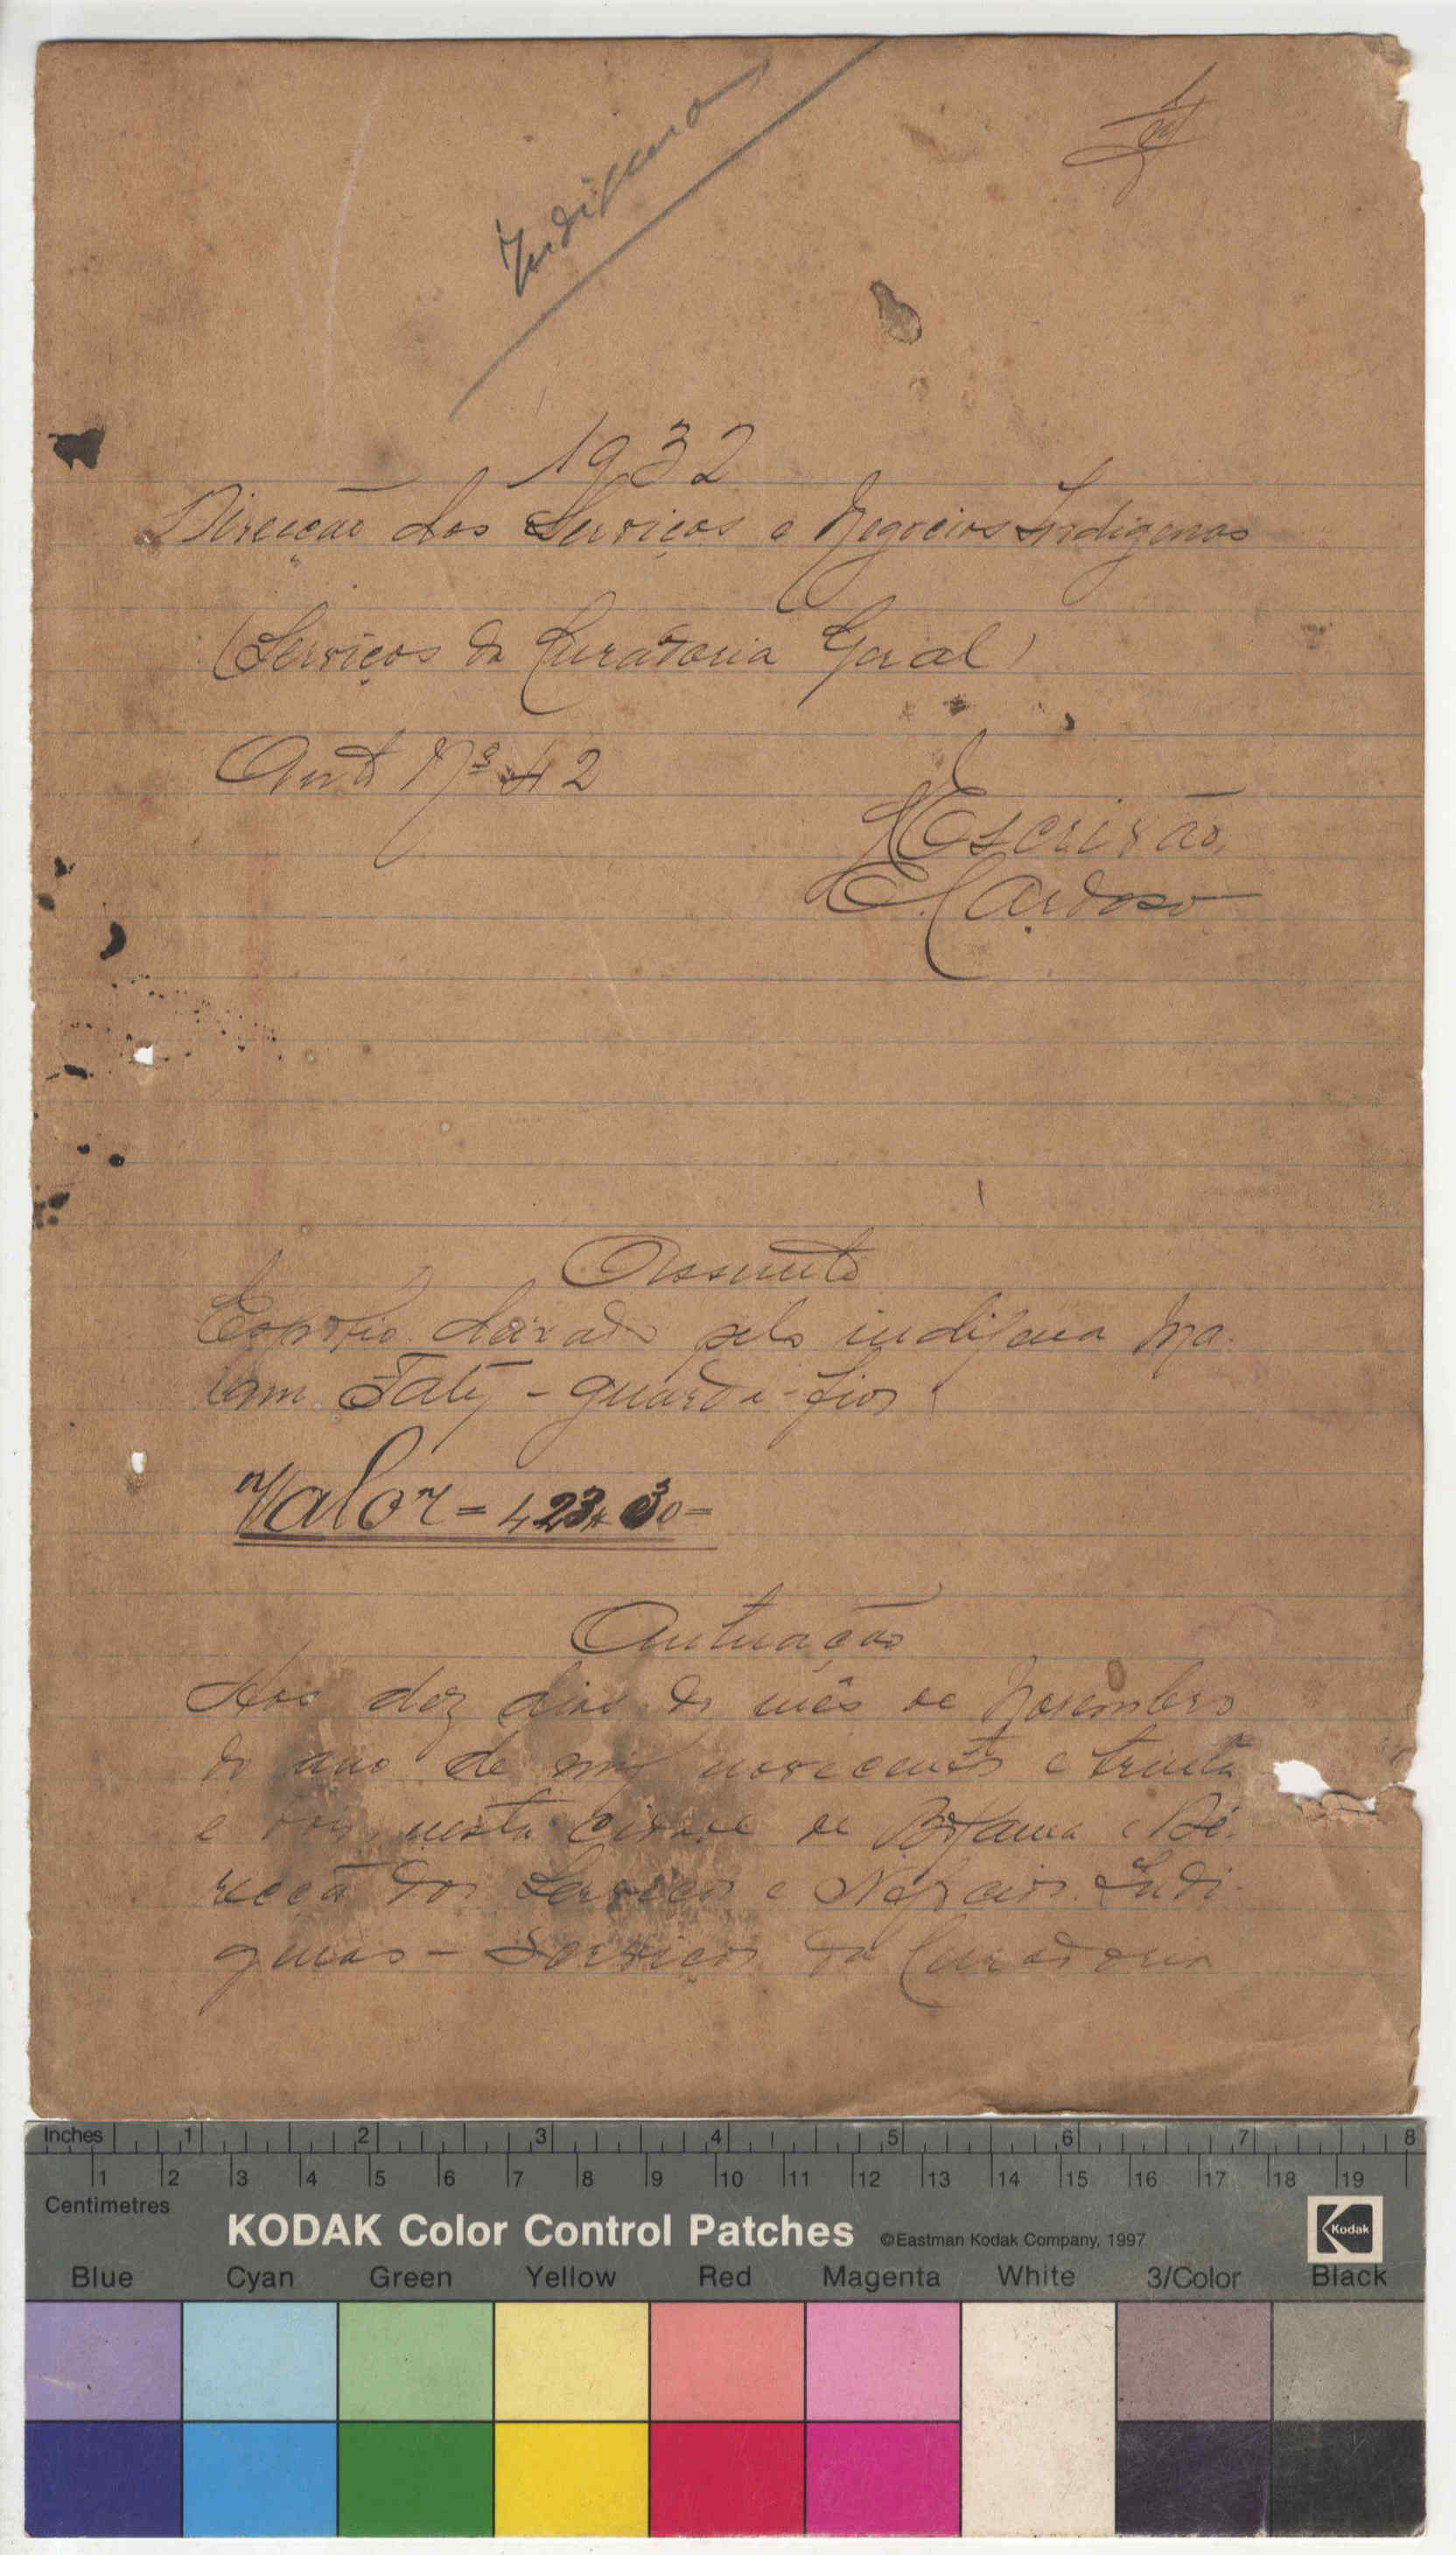 Indigena
1932
Direcção dos Serviços e Negocios Indigenas
(Serviços da Curadoria Geral)
Aut Nº 42
O Escrivão,
E. Cardoso
Assunto
Espolio deixado pelo indigena Ma-
lam Faty - guarda-fios
Valor = 423,
Autuação
Aos dez dias do mês de Novembro
do ano de mil novecentos e trinta
e dois, nesta cidade de Bolama e Di-
recção dos Serviços e Negocios Indi-
genas - Serviços da Curadoria
Inches 1 2 3 4 5 6 7 8
1 2 3 4 5 6 7 8 9 10 11 12 13 14 15 16 17 18 19
Centimetres
KODAK Color Control Patches ©Eastman Kodak Company, 1997 Kodak
Blue Cyan Green Yellow Red Magenta White 3/Color Black